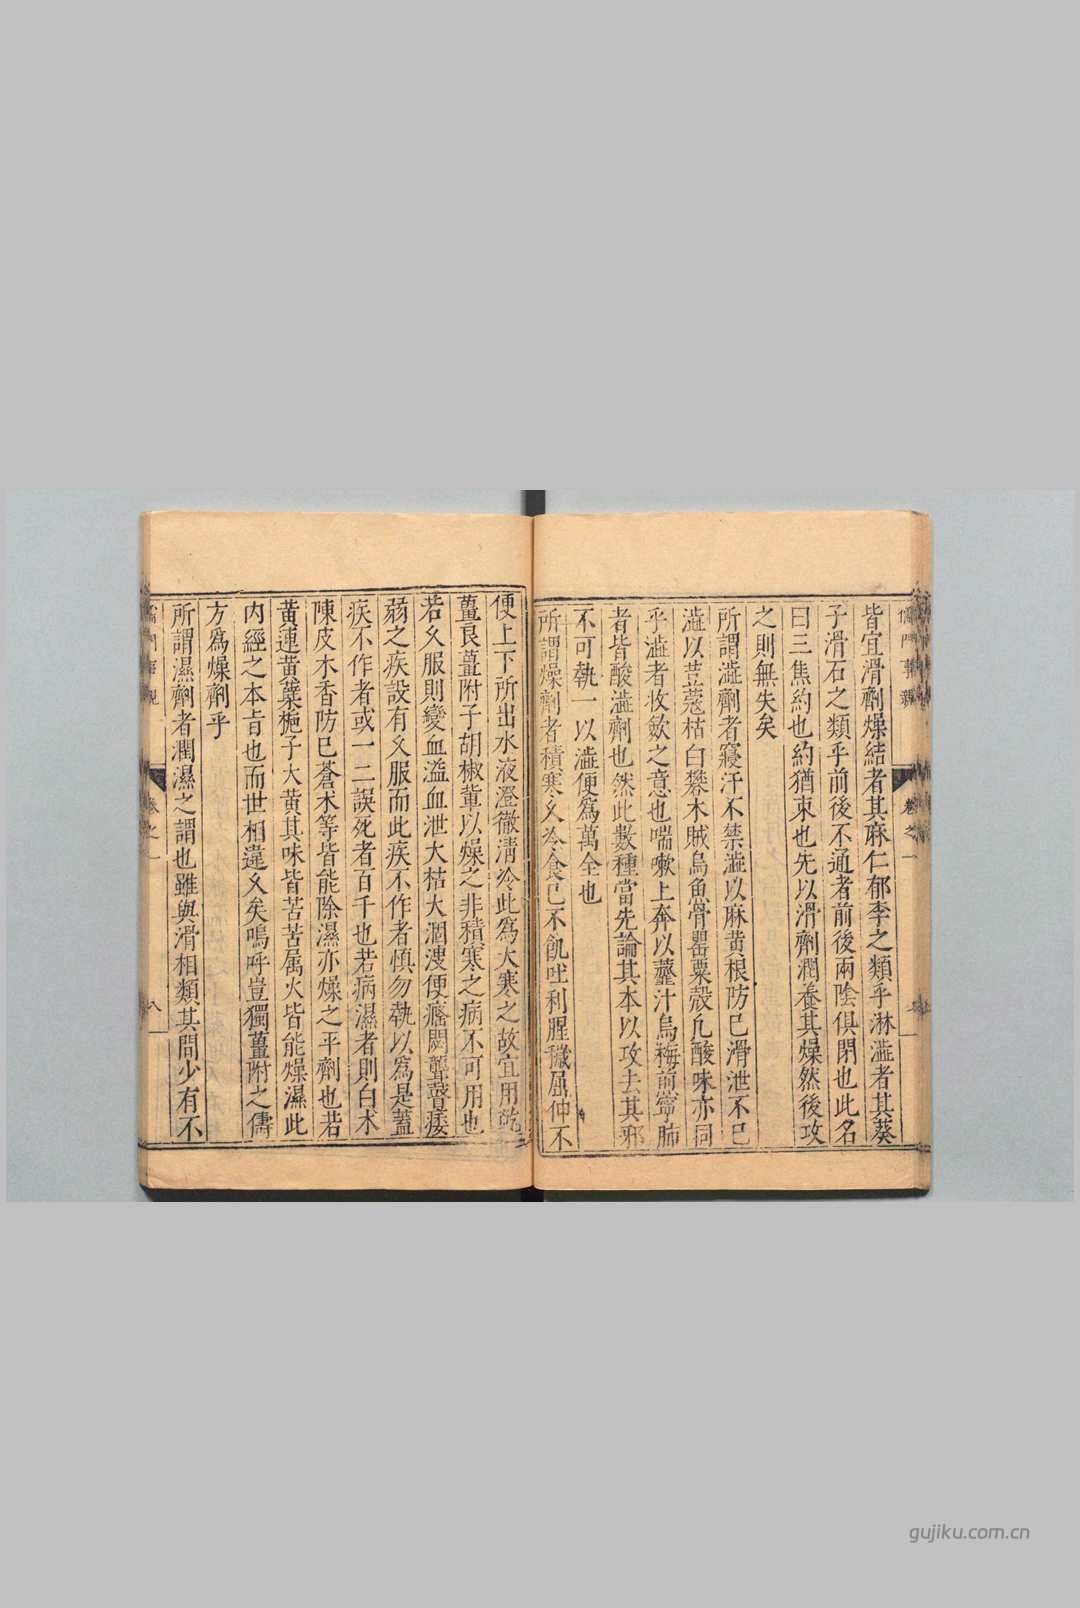 儒門事親
卷之一
皆宜滑劑燥結者其麻仁郁李之類乎淋澁者其葵
子滑石之類乎前後不通者前後兩陰俱閉也此名
曰三焦約也約猶束也先以滑劑潤養其燥然後攻
之則無失矣
所謂澁劑者寢汗不禁澁以麻黄根防已滑泄不已
澁以荳蔲枯白礬木賊烏魚骨罌粟殼凡酸味亦同
乎澁者收歛之意也喘嗽上奔以虀汁烏梅煎寧肺
者皆酸澁劑也然此數種當先論其本以攻去其邪
不可執一以澁便爲萬全也
所謂燥劑者積寒久冷食已不飢吐利腥穢屈伸不
便上下所出水液澄徹清冷此爲大寒之故宜用乾
薑良薑附子胡椒軰以燥之非積寒之病不可用也
若久服則變血溢血泄大枯大涸溲便癃閉聾瞽痿
弱之疾設有久服而此疾不作者慎勿執以爲是蓋
疾不作者或一二誤死者百千也若病濕者則白术
陳皮木香防已蒼术等皆能除濕亦燥之平劑也若
黄連黄蘗梔子大黄其味皆苦苦属火皆能燥濕此
内經之本旨也而世相違久矣嗚呼豈獨薑附之儔
方爲燥劑乎
所謂濕劑者潤濕之謂也雖與滑相類其間少有不
儒門事親
卷之一
八
gujiku.com.cn